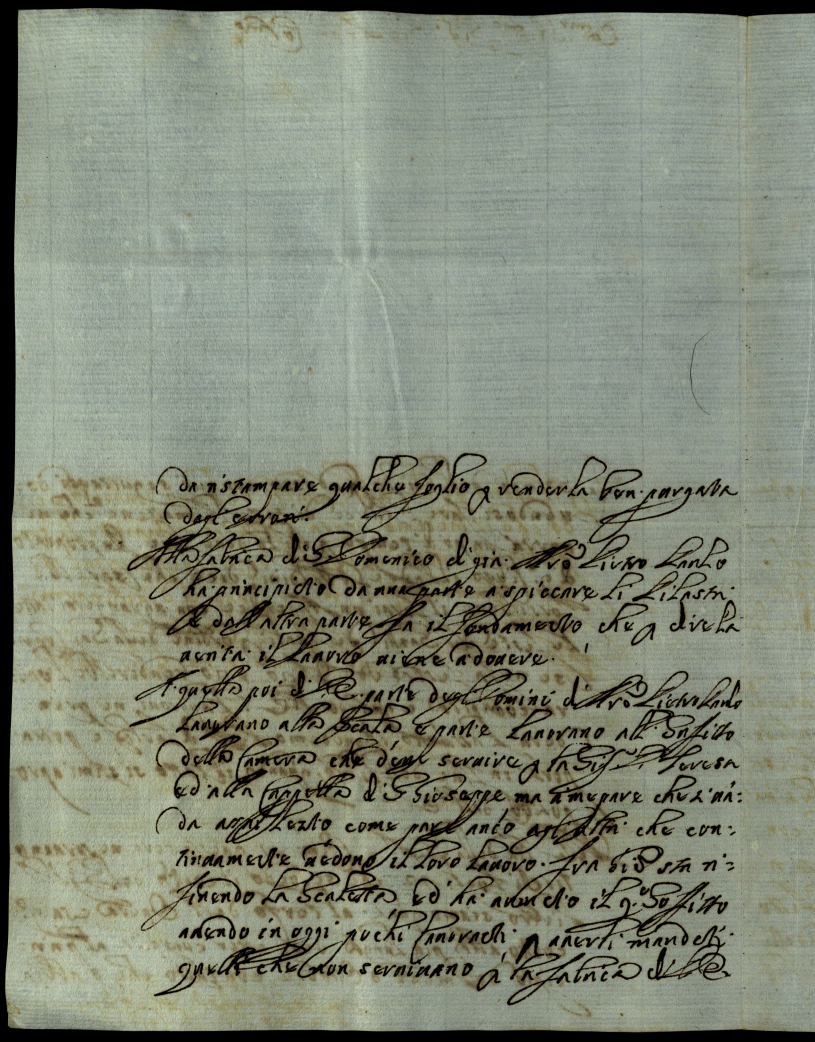 da ristampare qualche foglio p renderla ben purgata
dagl'errori.
Alla fabrica di S. Domenico di già Mro Pietro Paulo
ha principiato da una parte a spiccare li Pilastri
e dall'altra parte fa il fondamento che p dire la
verità il lavoro viene a dovere.
A quella poi di parte degl'Omini di Mro Pietro Paulo
lavorano alla Scala e parte lavorano all' Sofitto
della Camera che deve servire p la Sig.ra Teresa
ed alla Cappella di S. Gioseppe ma a me pare che si va:
da come pare anco agl'altri che con:
tinuamente vedono il loro lavoro. fra Gio sta ri:
finendo la Scaletta ed ha il Sofitto
avendo in oggi pochi lavoranti p averli mandati
quelli che non servivano a la fabrica di